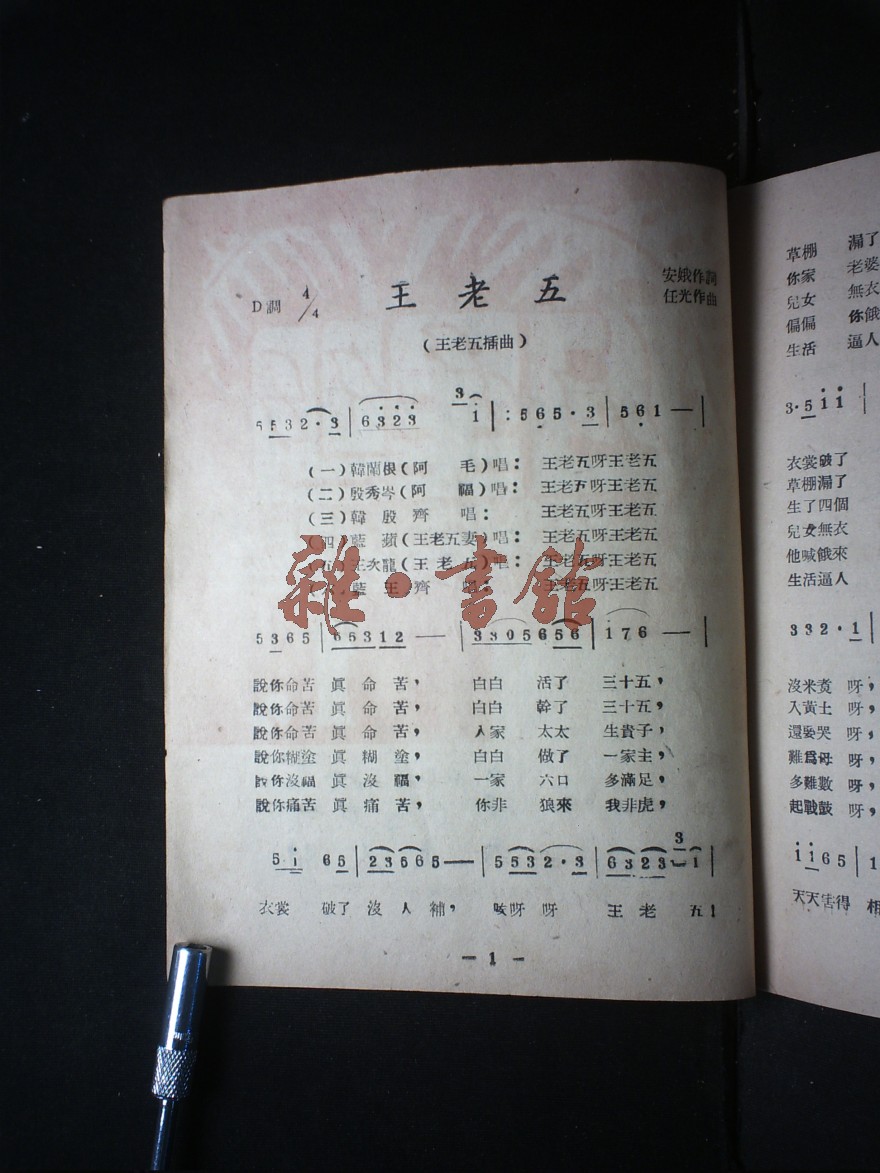 王老五
D調 4/4
安娥作詞
任光作曲
(王老五插曲)
5532·3|6323 3 i|:565·3|561—|
(一)韓蘭根(阿 毛)唱: 王老五呀王老五
(二)殷秀岑(阿 福)唱: 王老五呀王老五
(三)韓 殷 齊 唱: 王老五呀王老五
(四)藍 蘋(王老五妻)唱: 王老五呀王老五
(五)王次龍(王 老 五)唱: 王老五呀王老五
藍 王 齊 唱: 王老五呀王老五
雜·書館
5365|65312—|3305656|176—|
說你命苦 眞 命 苦, 白白 活了 三十五,
說你命苦 眞 命 苦, 白白 幹了 三十五,
說你命苦 眞 命 苦, 人家 太太 生貴子,
說你糊塗 眞 糊 塗, 白白 做了 一家主,
說你沒福 眞 沒 福, 一家 六口 多滿足,
說你痛苦 眞 痛 苦, 你非 狼來 我非虎,
5i 65|23565—|5532·3|6323 3 1|
衣裳 破了 沒 人 補, 咳呀呀 王 老 五!
— 1 —
草棚 漏了
你家 老婆
兒女 無衣
偏偏 你餓
生活 逼人
3·5ii
衣裳破了
草棚漏了
生了四個
兒女無衣
他喊餓來
生活逼人
332·1|
沒米煮 呀,
入黃土 呀,
還要哭 呀,
難爲母 呀,
多難數 呀,
起戰鼓 呀,
ii65|1
天天害得